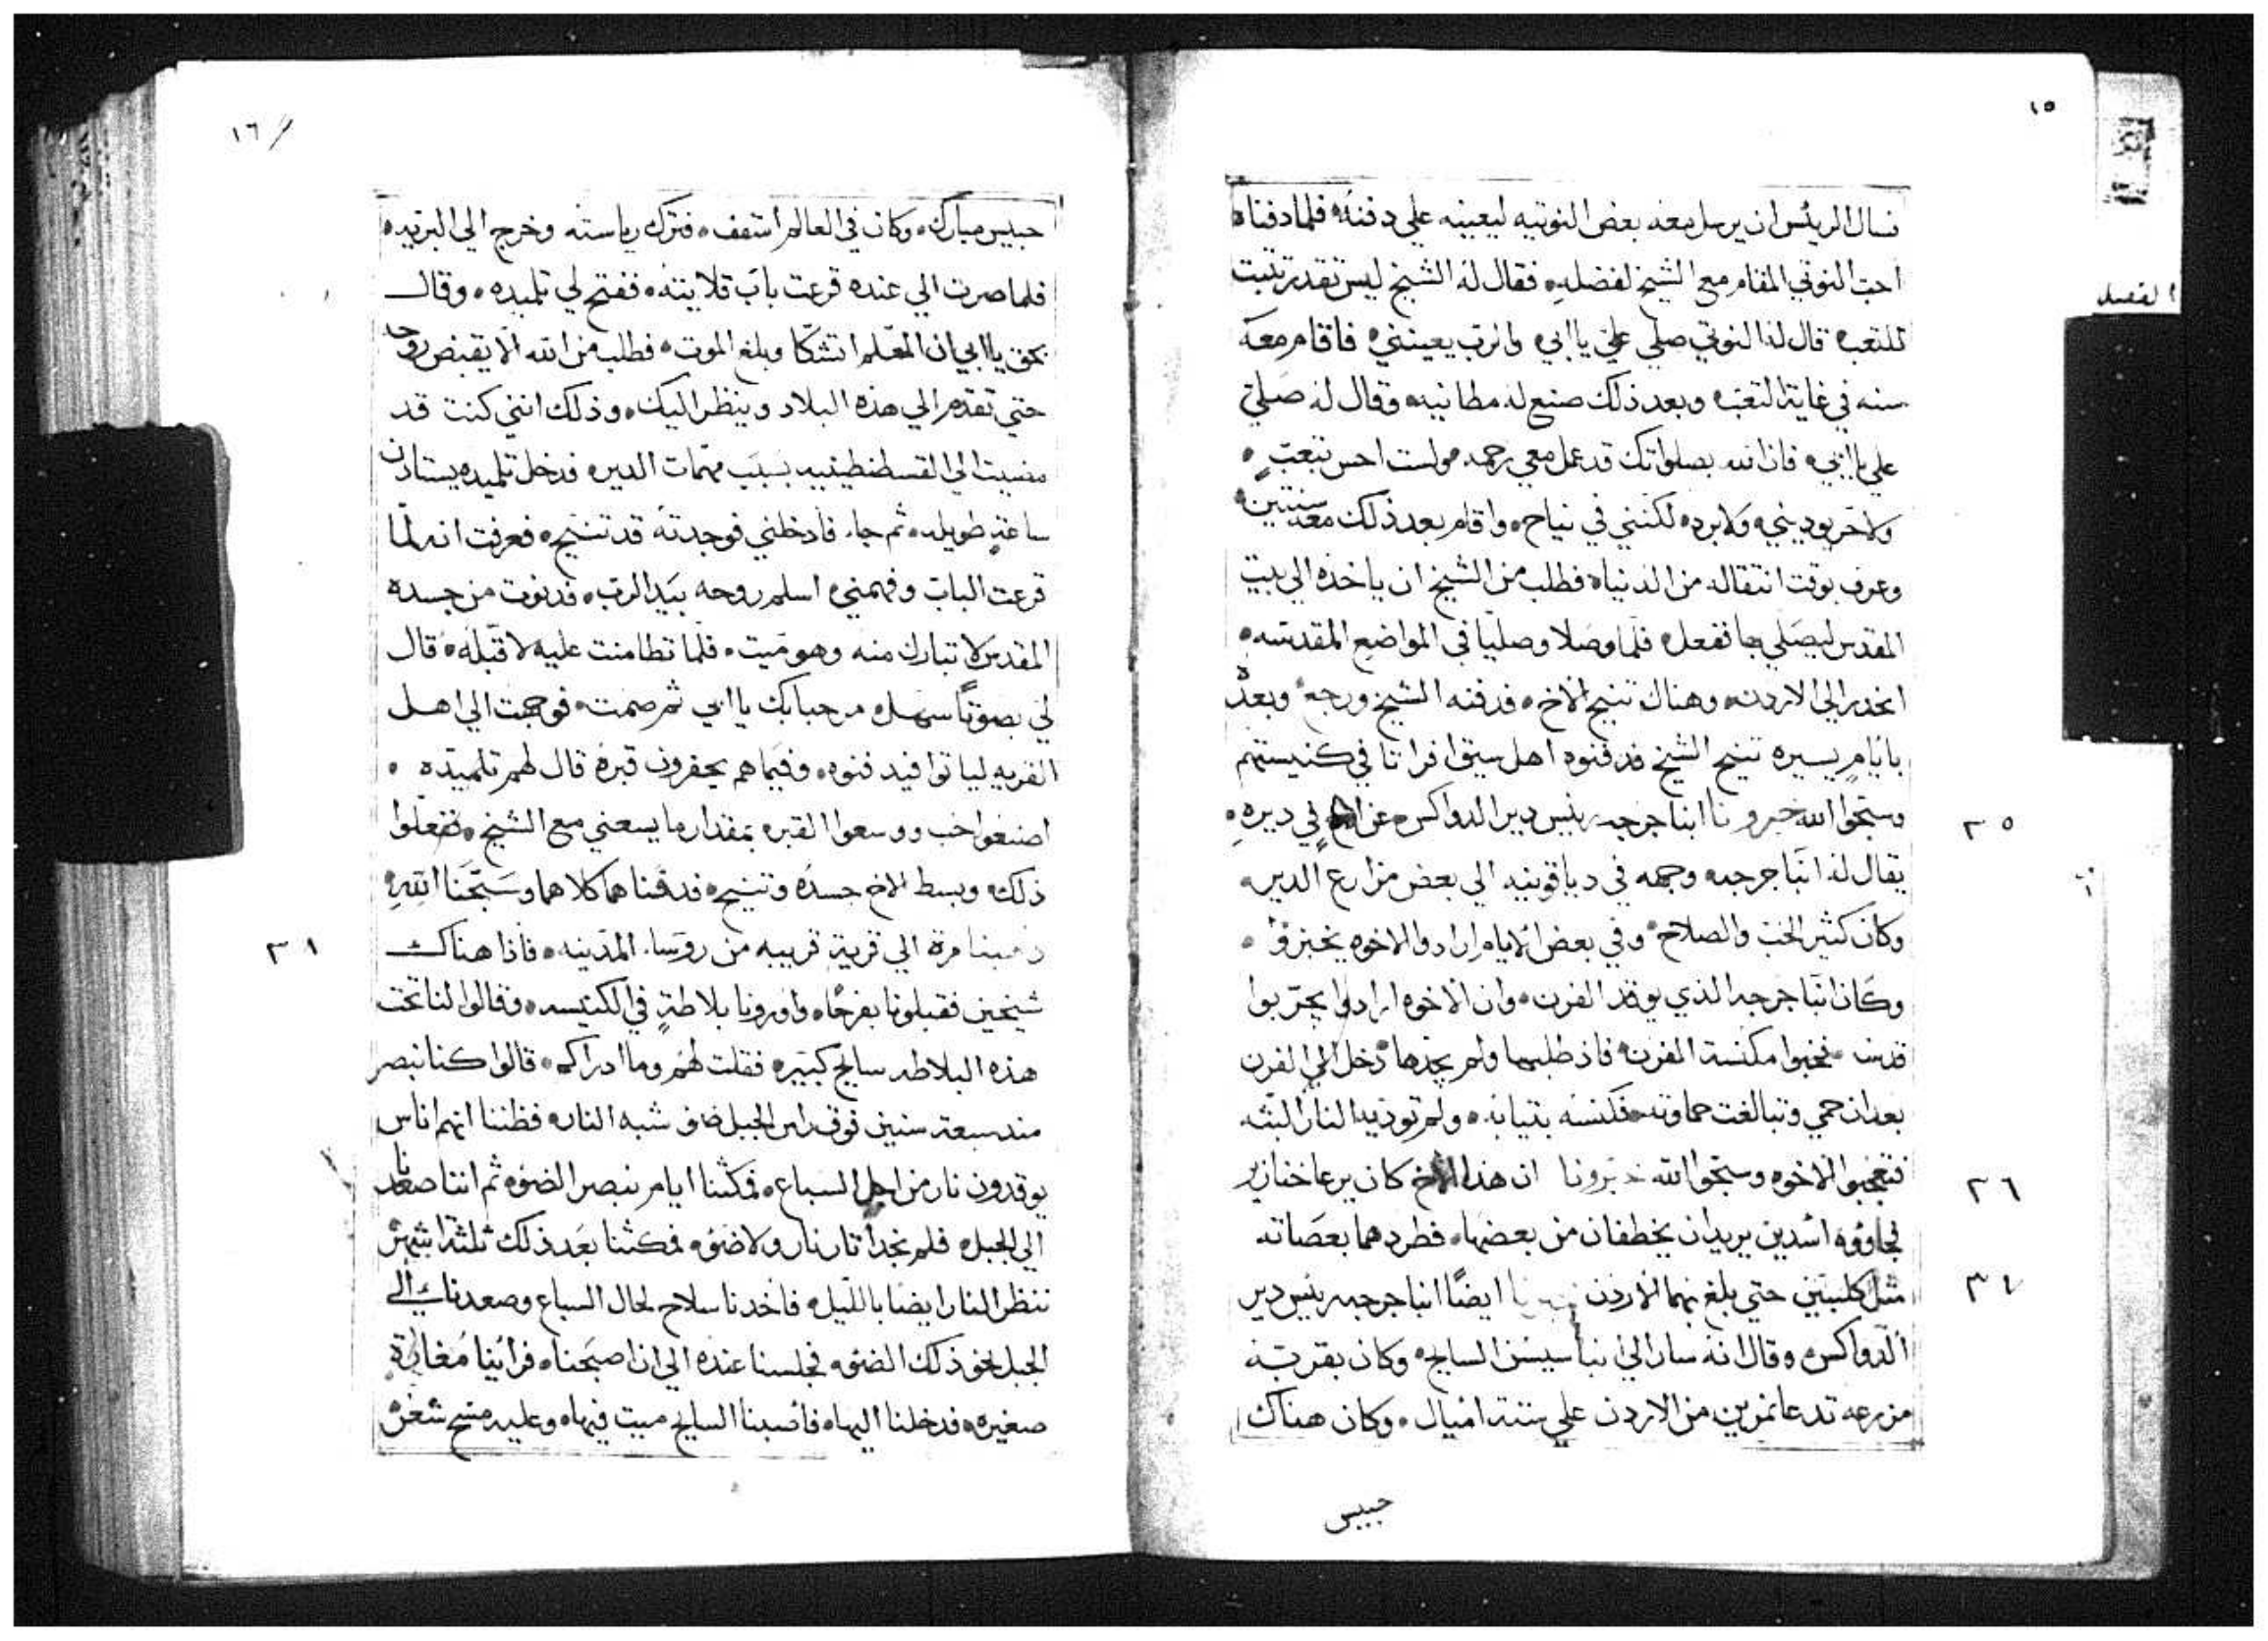 ١٥
فسال الريس ان يرسل معه بعض النوتيه ليعينه علي دفنه فلما دفناه
احب النوتي المقام مع الشيخ لفضله فقال له الشيخ ليس تقدر تثبت
للتعب قال له النوتي صلي علي يا ابي والرب يعينني فاقام معه
سنه في غاية التعب وبعد ذلك صنع له مطانيه وقال له صلي
علي يا ابي فان الله بصلواتك قد عمل معي رحمه ولست احس بتعب
ولا حر يوديني ولا برد لكنني في نياح واقام بعد ذلك معه سنتين
وعرف بوقت انتقاله من الدنيا فطلب من الشيخ ان ياخذه الي بيت
المقدس ليصلي بها ففعل فلما وصلا وصليا في المواضع المقدسه
انحدرا الي الاردن وهناك تنيح الاخ فدفنه الشيخ ورجع وبعده
بايام يسيره تنيح الشيخ فدفنوه اهل سيق افراتا في كنيستهم
وسبحوا الله خبرونا انبا جرجه ريس دير الدواكس عن اخ في ديره
٣٥
يقال له انبا جرجه وجهه في دياقونيه الي بعض مزارع الدير
وكان كثير الحب والصلاح وفي بعض الايام ارادوا الاخوه يخبزوا
وكان انبا جرجه الذي يوقد الفرن وان الاخوه ارادوا يجربوا
قدسه فخبوا مكنسة الفرن فاذ طلبها ولم يجدها دخل الي الفرن
بعد ان حمي وتبالغت حماوته فكنسه بثيابه ولم توذيه النار البته
فتعجبوا الاخوه وسبحوا الله خبرونا ان هذا الاخ كان يرعا خنازير
٣٦
فجاووه اسدين يريدان يخطفان من بعضها فطردهما بعصاته
مثل كلبين حتي بلغ بهما الاردن خبرنا ايضًا انبا جرجه ريس دير
٣٧
الدواكس وقال انه سار الي انبا سيسن السايح وكان بقرب
مزرعه تدعا نمرين من الاردن علي ستة اميال وكان هناك
حبيس
١٦
حبيس مبارك وكان في العالم اسقف فترك رياسته وخرج الي البريه
فلما صرت الي عنده قرعت باب قلايته ففتح لي تلميده وقال
بحق يا ابي ان المعلم اتشكا وبلغ الموت فطلب من الله الا يقبض روحه
حتي تقدم الي هذه البلاد وينظر اليك وذلك انني كنت قد
مضيت الي القسطنطينيه بسبب مهمات الدير فدخل تلميده يستادن
ساعة طويله ثم جاء فادخلني فوجدته قد تنيح فعرفت انه لما
قرعت الباب وفهمني اسلم روحه بيد الرب فدنوت من جسده
المقدس لاتبارك منه وهو ميت فلما تطامنت عليه لاقبله قال
لي بصوتًا سهل مرحبا بك يا ابي ثم صمت فوجهت الي اهل
القريه لياتوا فيدفنوه وفيما هم يحفرون قبره قال لهم تلميده
اصنعوا حب ووسعوا القبر بمقدار ما يسعني مع الشيخ ففعلوا
ذلك وبسط الاخ جسده وتنيح فدفناهما كلاهما وسبحنا الله
ذهبنا مرة الي قرية قريبه من روسا المدينه فاذا هناك
٣٨
شيخين فقبلونا بفرحًا واورونا بلاطة في الكنيسه وقالوا لنا تحت
هذه البلاطه سايح كبير فقلت لهم وما ادراكم قالوا كنا نبصر
مند سبعة سنين فوق راس الجبل ضو شبه النار فظننا انهم اناس
يوقدون نار من اجل السباع فمكثنا ايام نبصر الضوء ثم اننا صعدنا
الي الجبل فلم نجد اثار نار ولا ضوء فمكثنا بعد ذلك ثلثة اشهر
ننظر النار ايضا بالليل فاخدنا سلاح لحال السباع وصعدنا الي
الجبل نحو ذلك الضوء فجلسنا عنده الي ان اصبحنا فراينا مغارة
صغيره فدخلنا اليها فاصبنا السايح ميت فيها وعليه مسح شعر